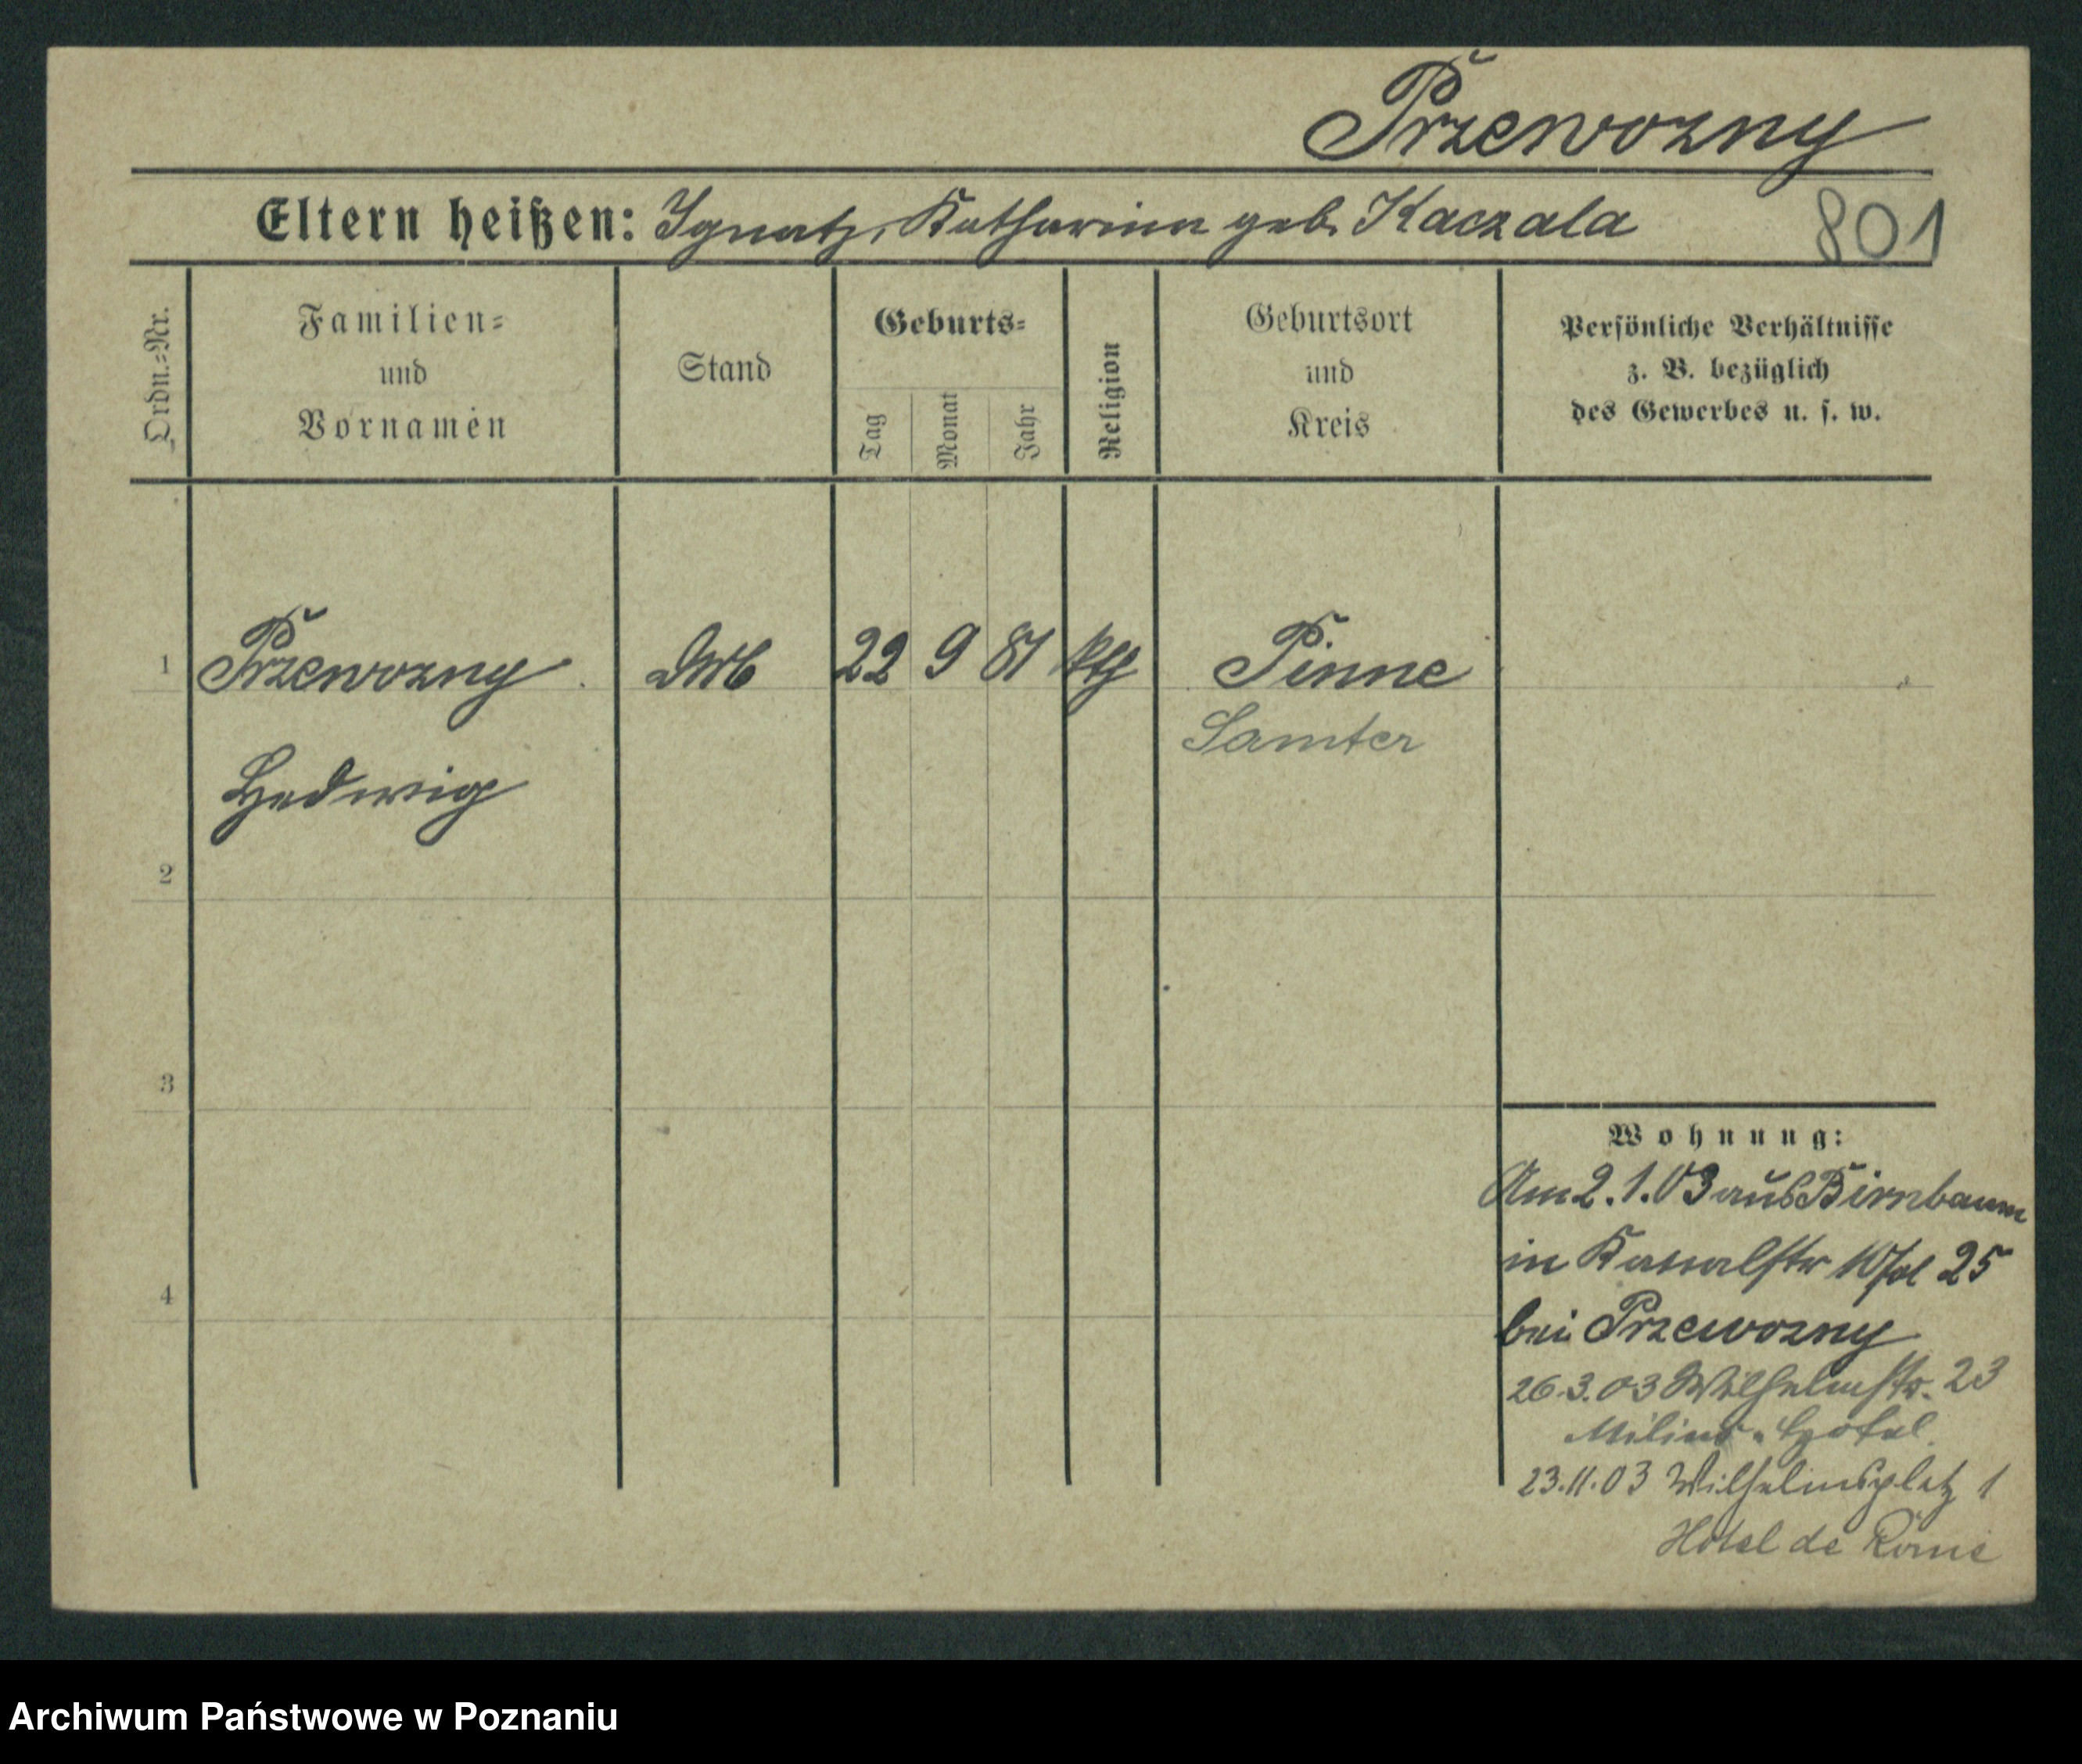 Przewozny
Eltern heißen: Ignatz, Katharina geb. Kaczala 801
Ordn.-Nr.
Familien-
und
Vornamen
Stand
Geburts-
Tag
Monat
Jahr
Religion
Geburtsort
und
Kreis
Persönliche Verhältnisse
z. B. bezüglich
des Gewerbes u. s. w.
1 Przewozny 22 9 81 kth Pinne
Samter
Hedwig
2
3
4
Wohnung:
Am 2.1.03 aus Birnbaum
in Kanalstr 25
bei Przewozny
26.3.03 Wilhelmstr. 23
Milius Hotel
23.11.03 Wilhelmsplatz 1
Hotel de Rome
Archiwum Państwowe w Poznaniu